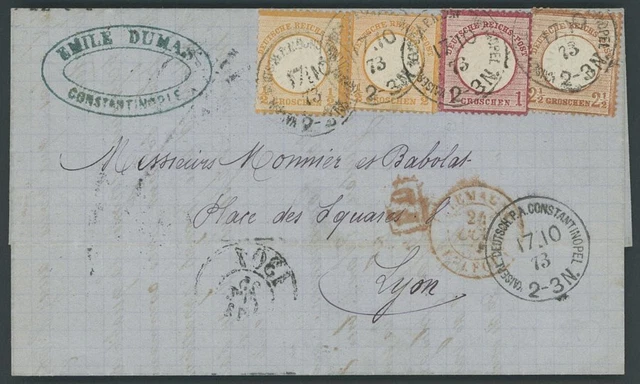 EMILE DUMAS
CONSTANTINOPLE
DEUTSCHE REICHS-POST
½ GROSCHEN ½
DEUTSCHE REICHS-POST
½ GROSCHEN ½
DEUTSCHE REICHS-POST
1 GROSCHEN 1
DEUTSCHE REICHS-POST
2½ GROSCHEN 2½
17.10
73
2-3N.
17.10
73
2-3N.
17.10
73
2-3N.
Messieurs Monnier et Babolat
Place des Squares
Lyon
KAISERL. DEUTSCH. P.A. CONSTANTINOPEL
17.10
73
2-3N.